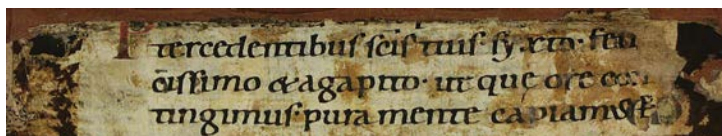 tercedentibus scīs tuis · sy · xto · feli
cissimo & agapito · ut que ore con
tingimus · pura mente capiamus